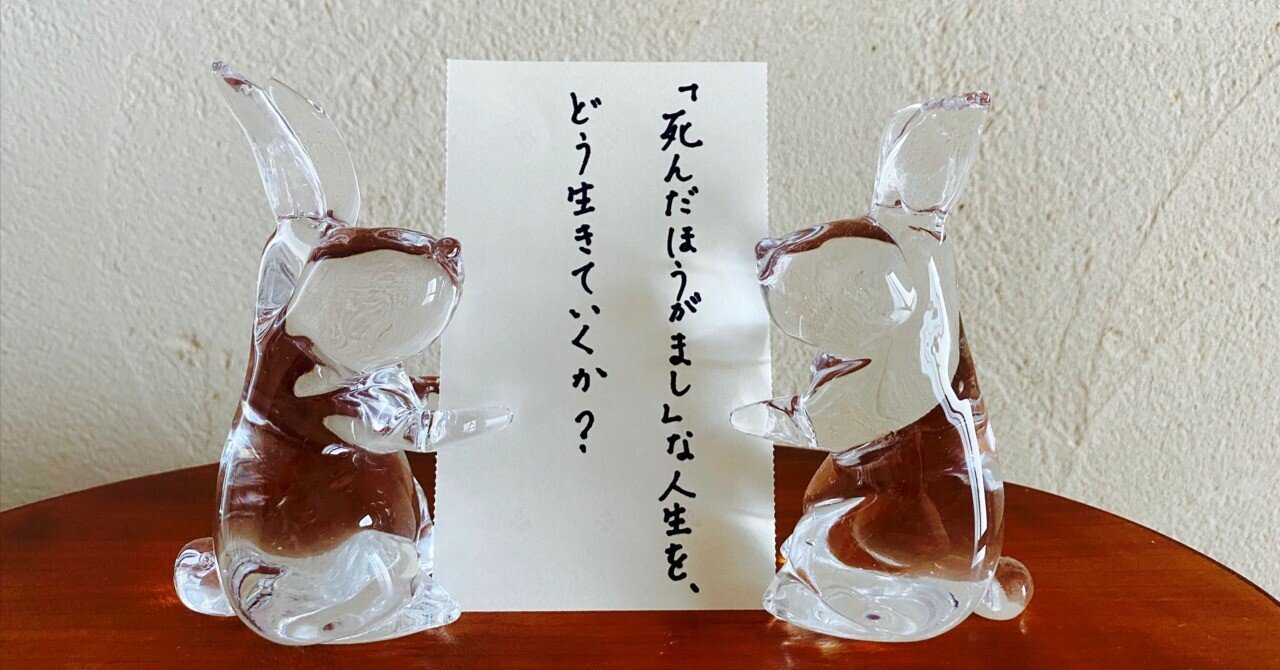 「死んだほうがまし」な人生を、
どう生きていくか？